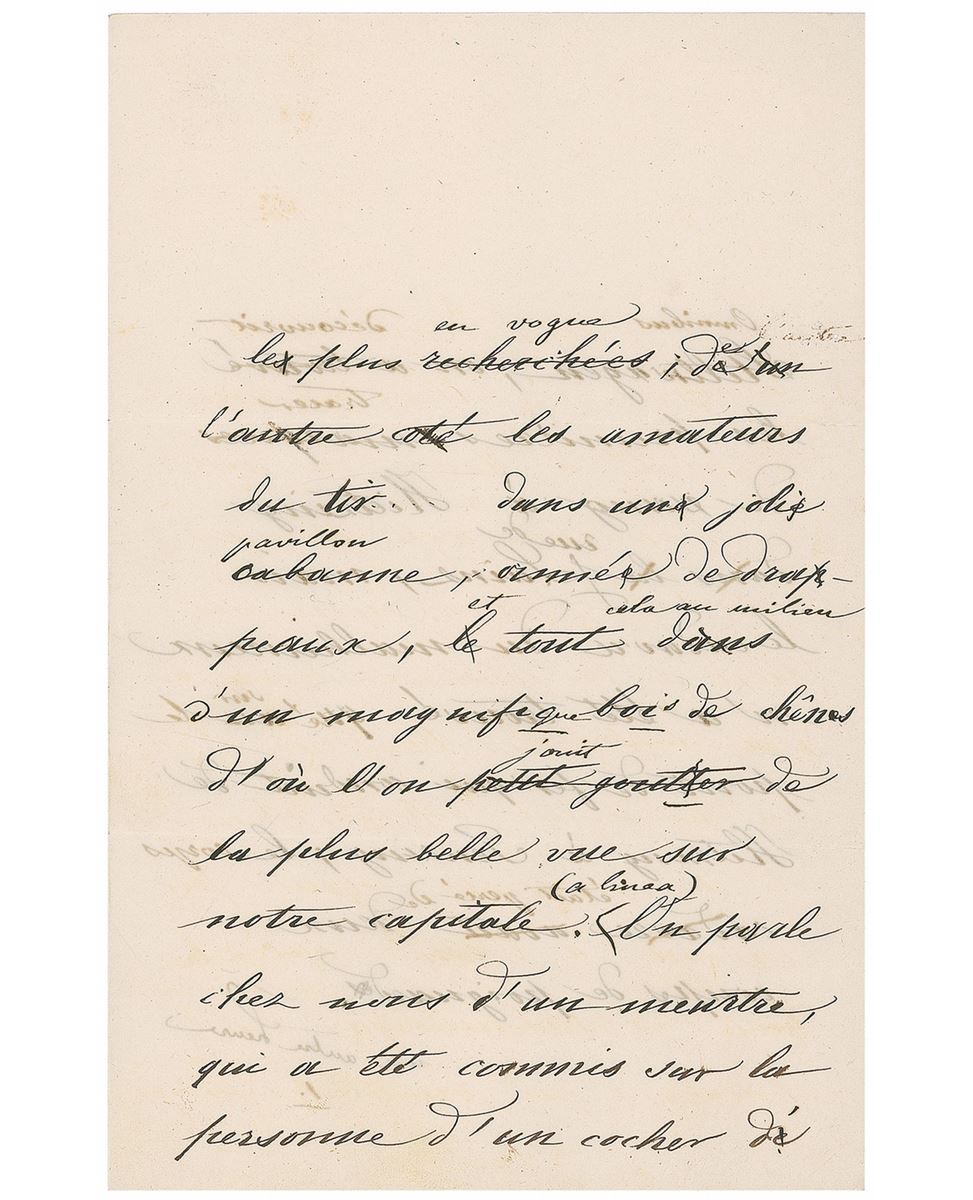 en vogue
les plus recherchées ; de l'un
l'autre coté les amateurs
du tir... dans une jolie
pavillon
cabanne, ornnée de drap-
et cela au milieu
peaux, le tout dans
d'un magnifique bois de chênes
jouit
d'où l'on petit goutter de
la plus belle vue sur
(a linea)
notre capitale. (On parle
chez nous d'un meurtre,
qui a été commis sur la
personne d'un cocher